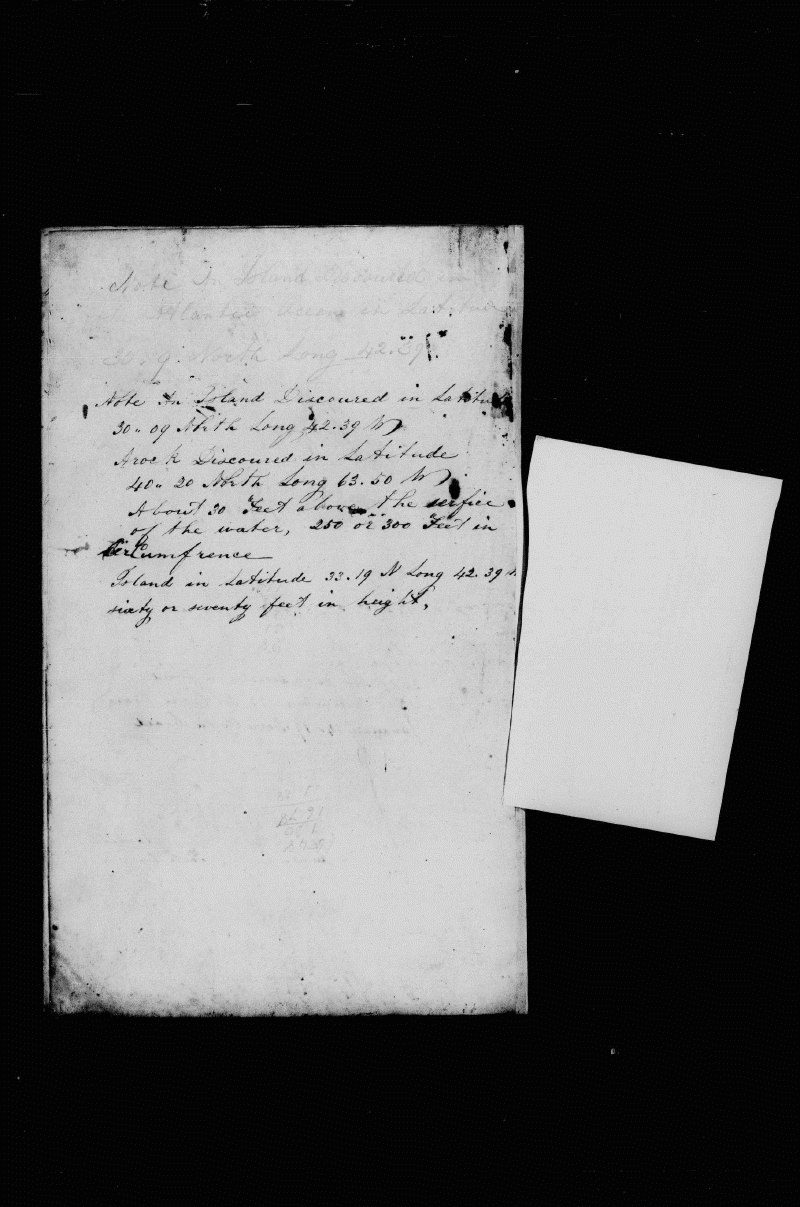 Note An Island Discoured in
the Atlantic Ocean in Latitude
30.9 North Long 42.39
Note An Island Discoured in Latitude
30.. 09 North Long 42.39 W
Arock Discoured in Latitude
40.. 20 North Long 63.50 W
About 30 Feet above the serfice
of the water, 250 or 300 Feet in
Circumfrence
Island in Latitude 33.19 N Long 42.39
sixty or seventy feet in height,